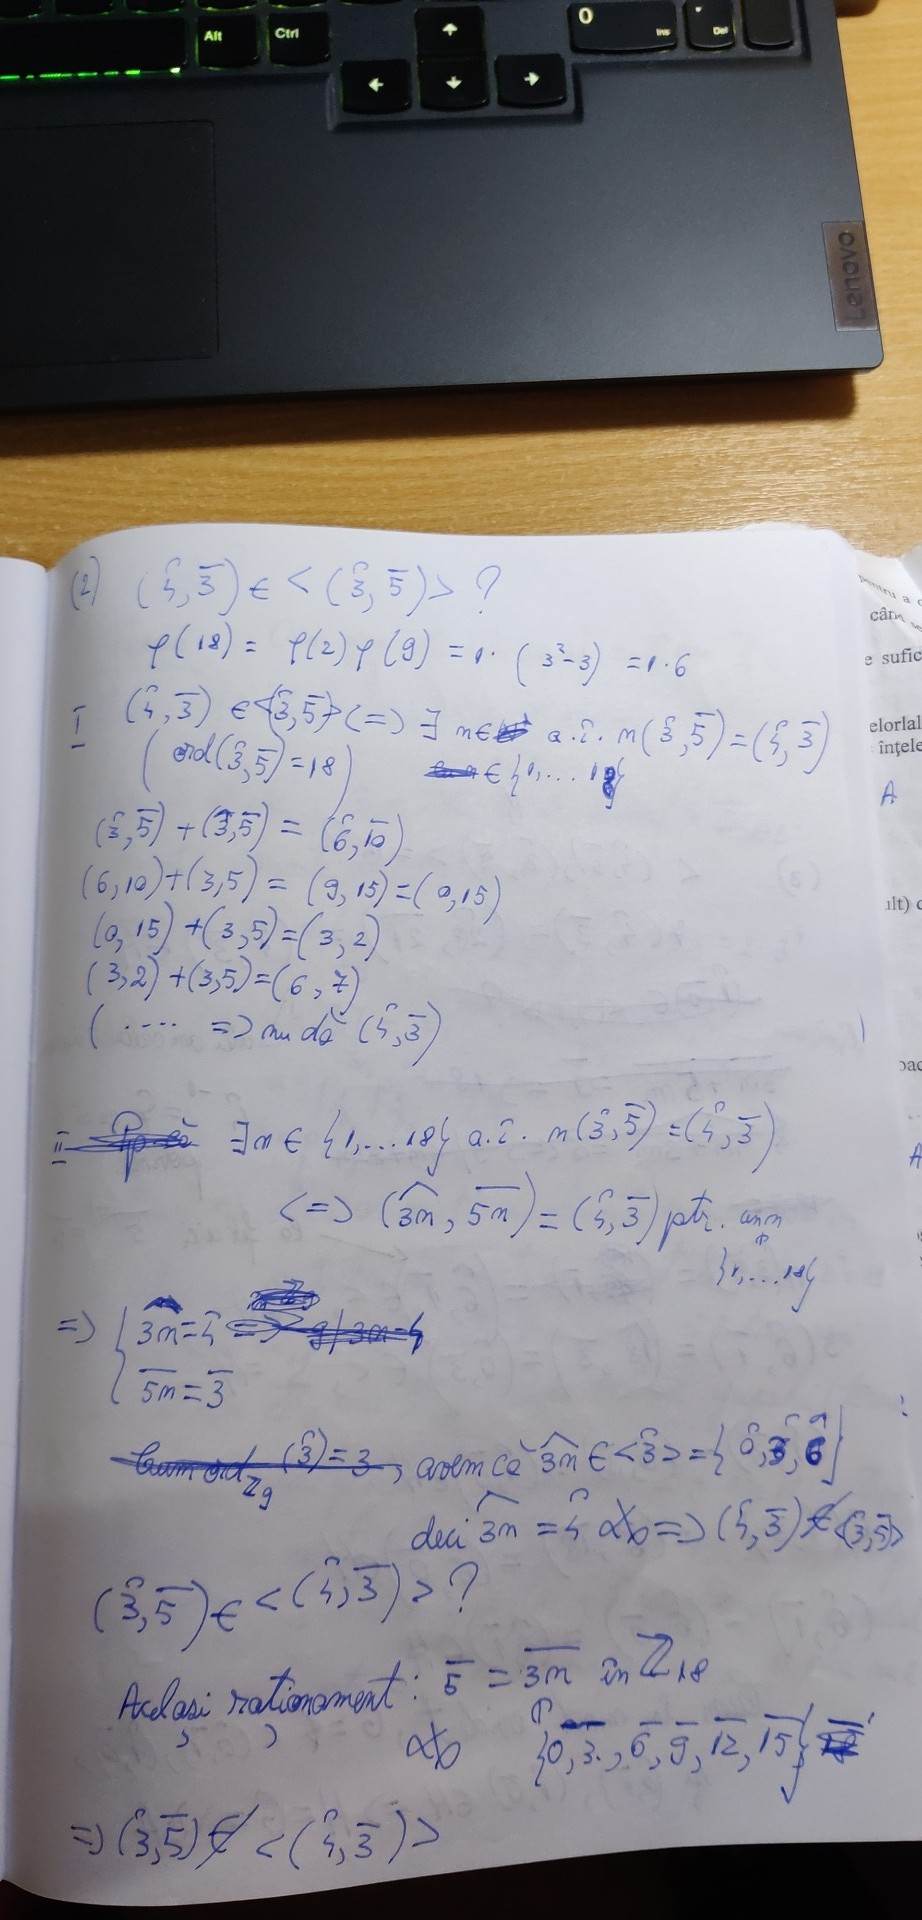 Alt
Ctrl
0
Ins
Del
Lenovo
(2) (4̂, 3̄) ∈ < (3̂, 5̄) > ?
φ(18) = φ(2) φ(9) = 1 · (3² - 3) = 1 · 6
I (4̂, 3̄) ∈ <(3̂, 5̄)> (=) ∃ n ∈ a.î. n(3̂, 5̄) = (4̂, 3̄)
(ord(3̂, 5̄) = 18) ∈ {1, ... 18}
(3̂, 5̄) + (3̂, 5̄) = (6̂, 1̄0̄)
(6, 10) + (3, 5) = (9, 15) = (0, 15)
(0, 15) + (3, 5) = (3, 2)
(3, 2) + (3, 5) = (6, 7)
( .... => nu dă (4̂, 3̄)
II ∃ n ∈ {1, ... 18} a.î. n(3̂, 5̄) = (4̂, 3̄)
<=> (3̂n̂, 5̄n̄) = (4̂, 3̄) ptr. un n
{1, ... 18}
=> { 3̂n̂ = 4̂
5̄n̄ = 3̄
(3̂) = 3, avem că 3̂n̂ ∈ <3̂> = {0̂, 3̂, 6̂}
deci 3̂n̂ = 4̂ => (4̂, 3̄) ∉ <3̂, 5̄>
(3̂, 5̄) ∈ < (4̂, 3̄) > ?
Același raționament : 5̄ = 3̄n̄ în ℤ18
{0̄, 3̄, 6̄, 9̄, 1̄2̄, 1̄5̄}
=> (3̂, 5̄) ∉ < (4̂, 3̄) >
pentru a
când
e sufic
elorlal
înțele
A
ult)
A